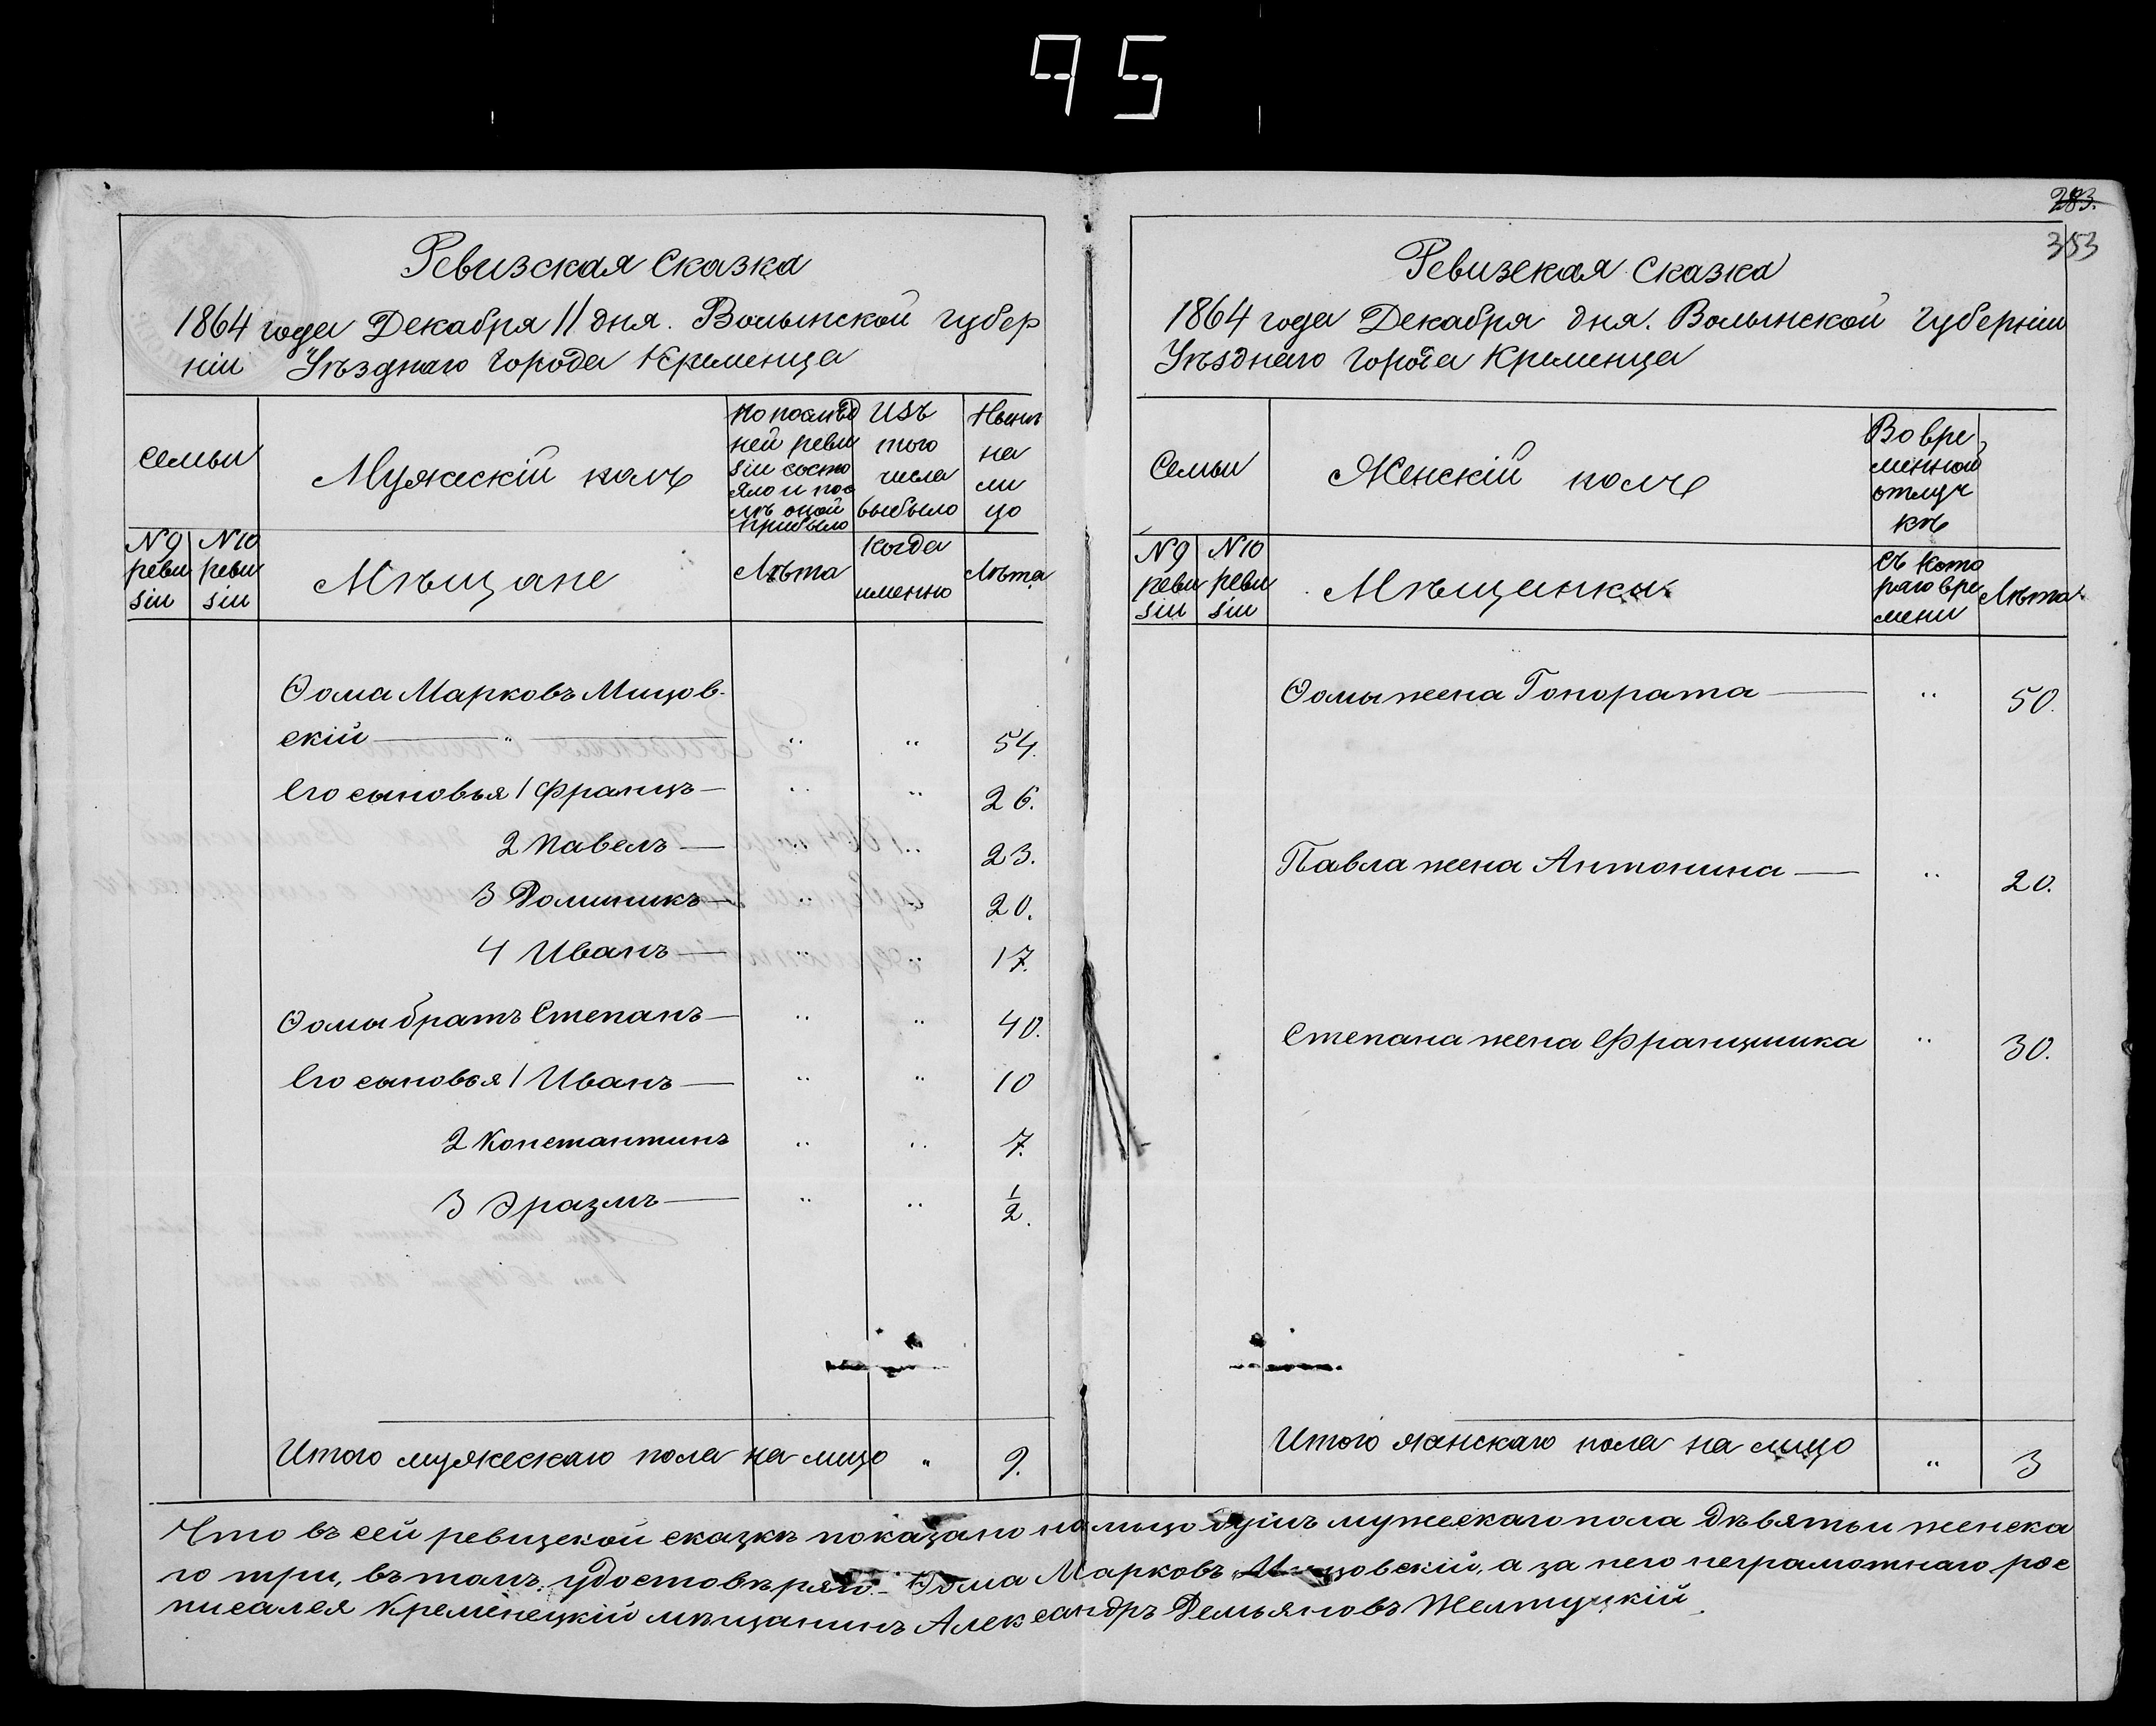 95
283.
353
Ревизская Сказка
1864 года Декабря 11 дня. Волынской губер
ніи Уѣзднаго города Кременца
Семьи
Мужескій полъ
По послѣд
ней реви
зіи состо
яло и пос
лѣ оной
прибыло
Изъ
того
числа
выбыло
Нынѣ
на
ли
цо
N 9
реви
зіи
N 10
реви
зіи
Мѣщане
Лѣта
Когда
именно
Лѣта
Ѳома Марковъ Мицов-
скій — " — " " 54.
Его сыновья 1 Францъ — " " 26.
2 Павелъ — " " 23.
3 Доминикъ — " " 20.
4 Иванъ — " " 17.
Ѳомы братъ Степанъ — " " 40.
Его сыновья 1 Иванъ — " " 10
2 Константинъ " " 7.
3 Эразмъ — " " 1/2.
Итого мужескаго пола на лицо " 9.
Ревизская Сказка
1864 года Декабря дня. Волынской Губерніи
Уѣзднаго города Кременца
Семьи
Женскій полъ
Во вре
менной
отлуч
кѣ
N 9
реви
зіи
N 10
реви
зіи
Мѣщанки
Съ кото
раго вре
мени
Лѣта
Ѳомы жена Гонората — " 50.
Павла жена Антонина — " 20.
Степана жена Францишка " 30.
Итого женскаго пола на лицо " 3
Что въ сей ревизской сказкѣ показано на лицо душъ мужескаго пола дѣвять и женска
го три, въ томъ удостовѣряю. – Ѳома Марковъ Мицовскій, а за него неграмотнаго рос
писался Кременецкій мѣщанинъ Александръ Демьяновъ Желтуцкій.